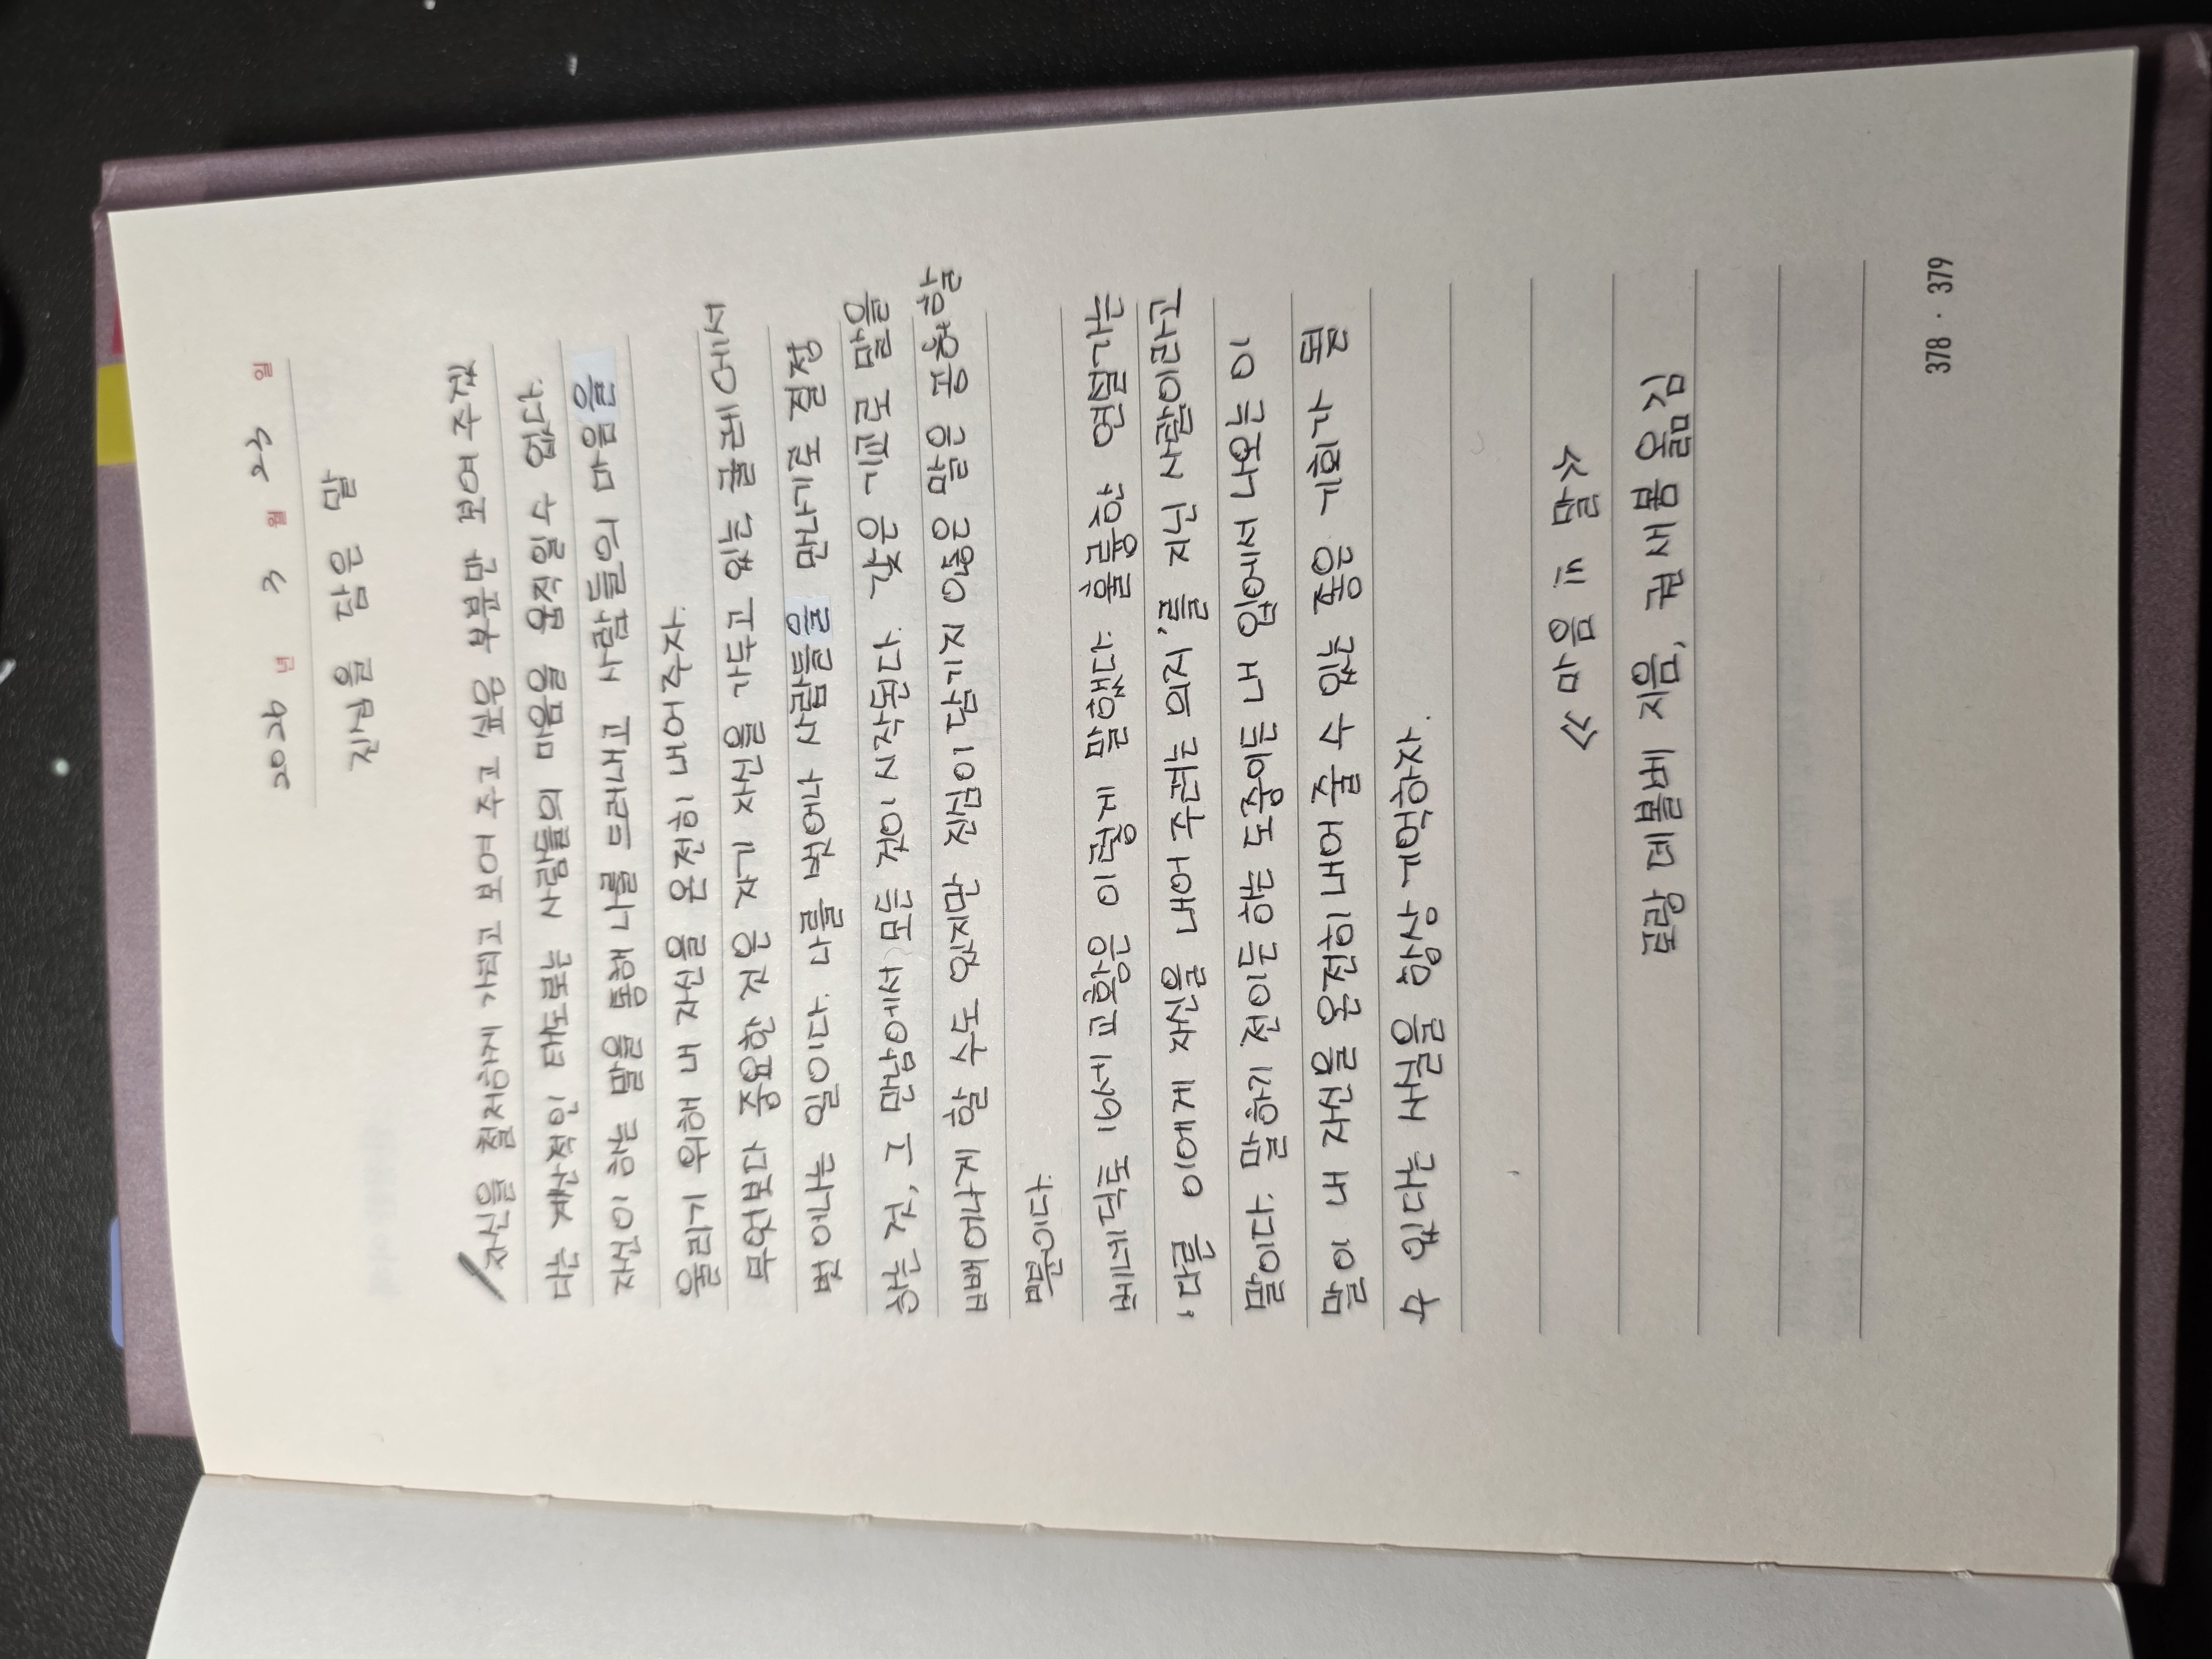 2026 년 3 월 23 일
진심을 담은 말
자신을 철저하게 가리고 보여 주고 싶은 부분만 보여 주겠
다는 계산적인 태도로는 사람들의 마음을 움직일 수 없다.
자신이 하는 말을 통해 나를 드러내고 사람들의 마음을
울리기 위해 내 자신을 온전히 내어 주자.
무엇보다 중요한 것은 자기 자신을 가두고 있는 굴레에서
벗어나는 일이다. 나를 벗어나 사람들을 만나기로 결정
하는 것, 그 만남에서 모든 것이 시작된다. 갖은 기교로 말을
빼어나게 할 수도 있지만 진심이 담기지 않은 말은 공허할
뿐이다.
베네딕토 16세 교황은 이렇게 말했다. 훌륭한 연설가는
'다른 이에게 자신을 내어 주려는 의지'를 지닌 사람이라고
말이다. 말하기 전이든 하는 도중이든 내 입에서 나오는 이
말이 내 자신을 온전히 내어 줄 수 있는 좋은 기회가 될
수 있다는 사실을 항상 기억하자.
《마음 쓰는 말》
로랑 데볼베 지음, 권새봄 옮김
378 · 379